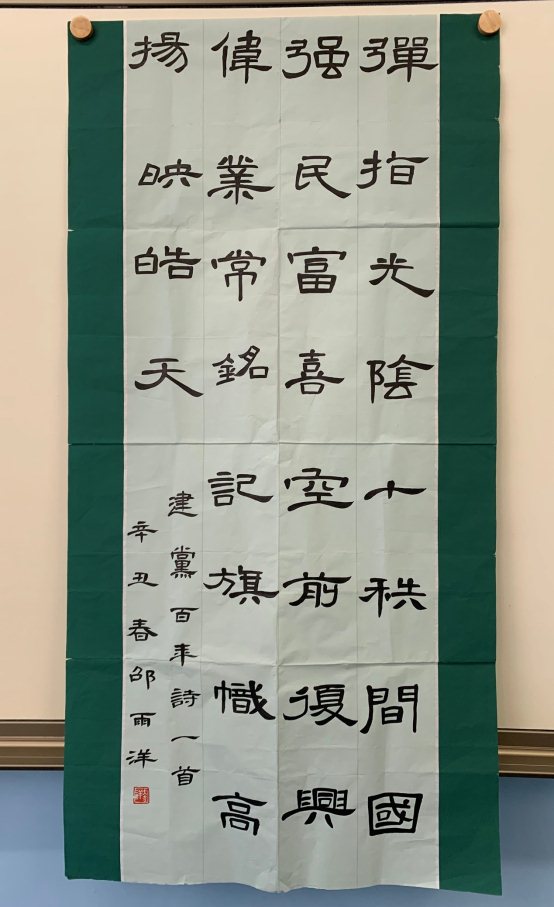 彈指光陰十秩間國
强民富喜空前復興
偉業常銘記旗幟高
揚映皓天
建黨百年詩一首
辛丑春邵雨洋